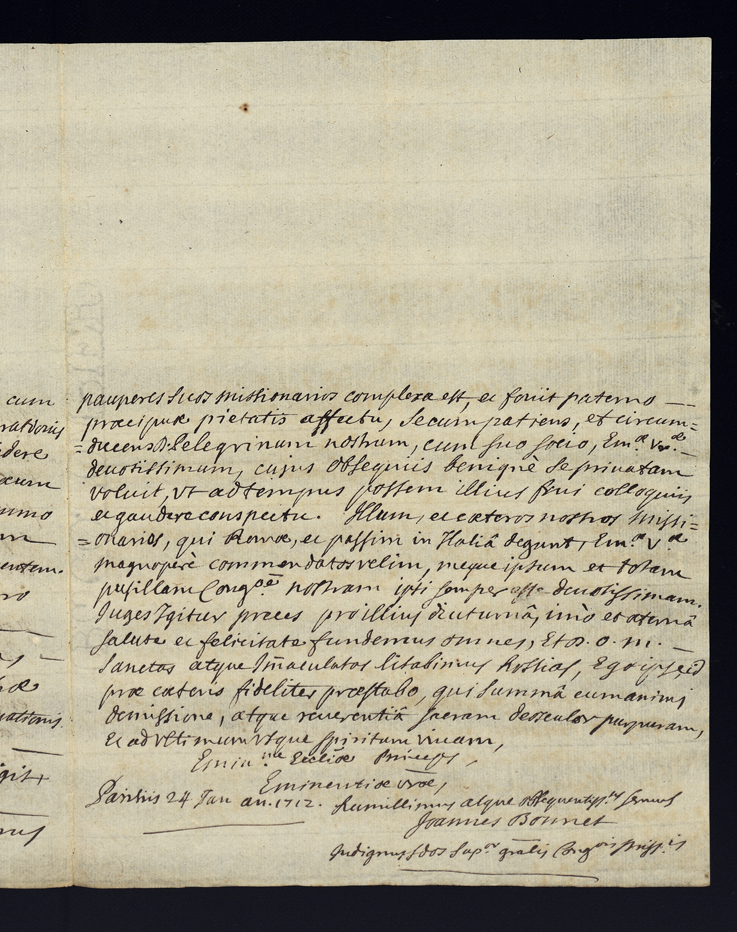 cum
pauperes suos missionarios complexa est, et fovit paterno —
præcipuæ pietatis affectu, secum patiens, et circum=
idere
=ducens D. Pelegrinum nostrum, cum suo socio, Em.æ Vræ.
devotissimum, cujus obsequiis benignè se privatam
voluit, vt ad tempus possem illius frui colloquiis
et gaudere conspectu. Illum, et cæteros nostros missi=
=onarios, qui Romæ, et passim in Italiâ degunt, Em.æ V.æ
magnoperè commendatos velim, meque ipsum et totam
pusillam Cong.oem nostram ipsi semper esse devotissimam.
Juges Igitur preces pro illius diuturnâ, imò et æternâ
salute et felicitate fundemus omnes, Et D. O. M. —
Sanctas atque Immaculatas litabimus hostias, Ego ipse id
præ cæteris fideliter præstabo, qui summâ cum animi
demissione, atque reverentiâ sacram deosculor purpuram,
Et ad vltimum vsque spiritum vivam,
Ecclïæ Princeps,
Eminentiæ vræ,
Parisiis 24 Jan an. 1712. humillimus atque obsequentiss.us servus
Joannes Bonnet
Indignus sdos Sup.or gñalis Cong.onis miss.is